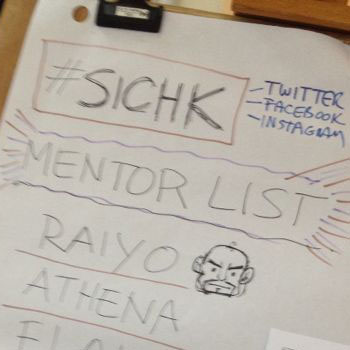 #SICHK
- TWITTER
- FACEBOOK
- INSTAGRAM
MENTOR LIST
RAIYO
ATHENA